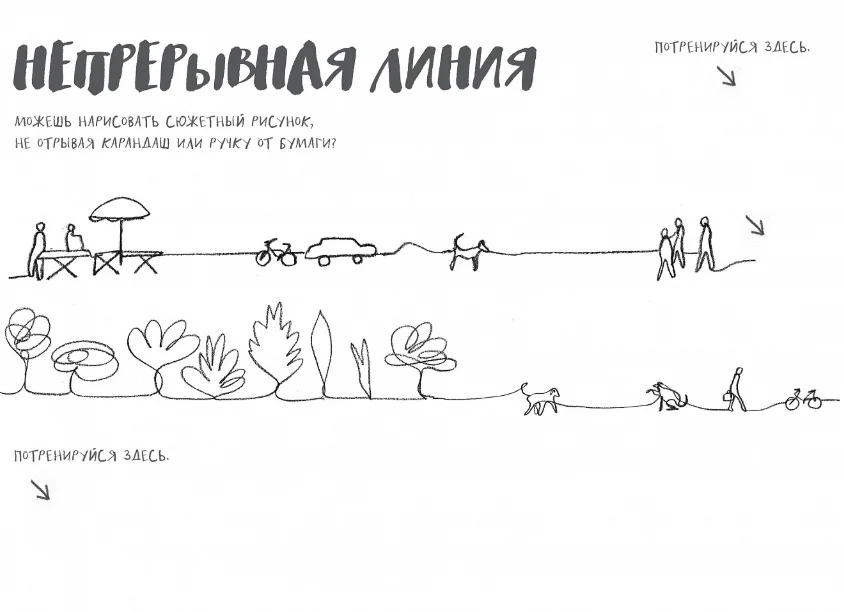 НЕПРЕРЫВНАЯ ЛИНИЯ
ПОТРЕНИРУЙСЯ ЗДЕСЬ.
МОЖЕШЬ НАРИСОВАТЬ СЮЖЕТНЫЙ РИСУНОК,
НЕ ОТРЫВАЯ КАРАНДАШ ИЛИ РУЧКУ ОТ БУМАГИ?
ПОТРЕНИРУЙСЯ ЗДЕСЬ.